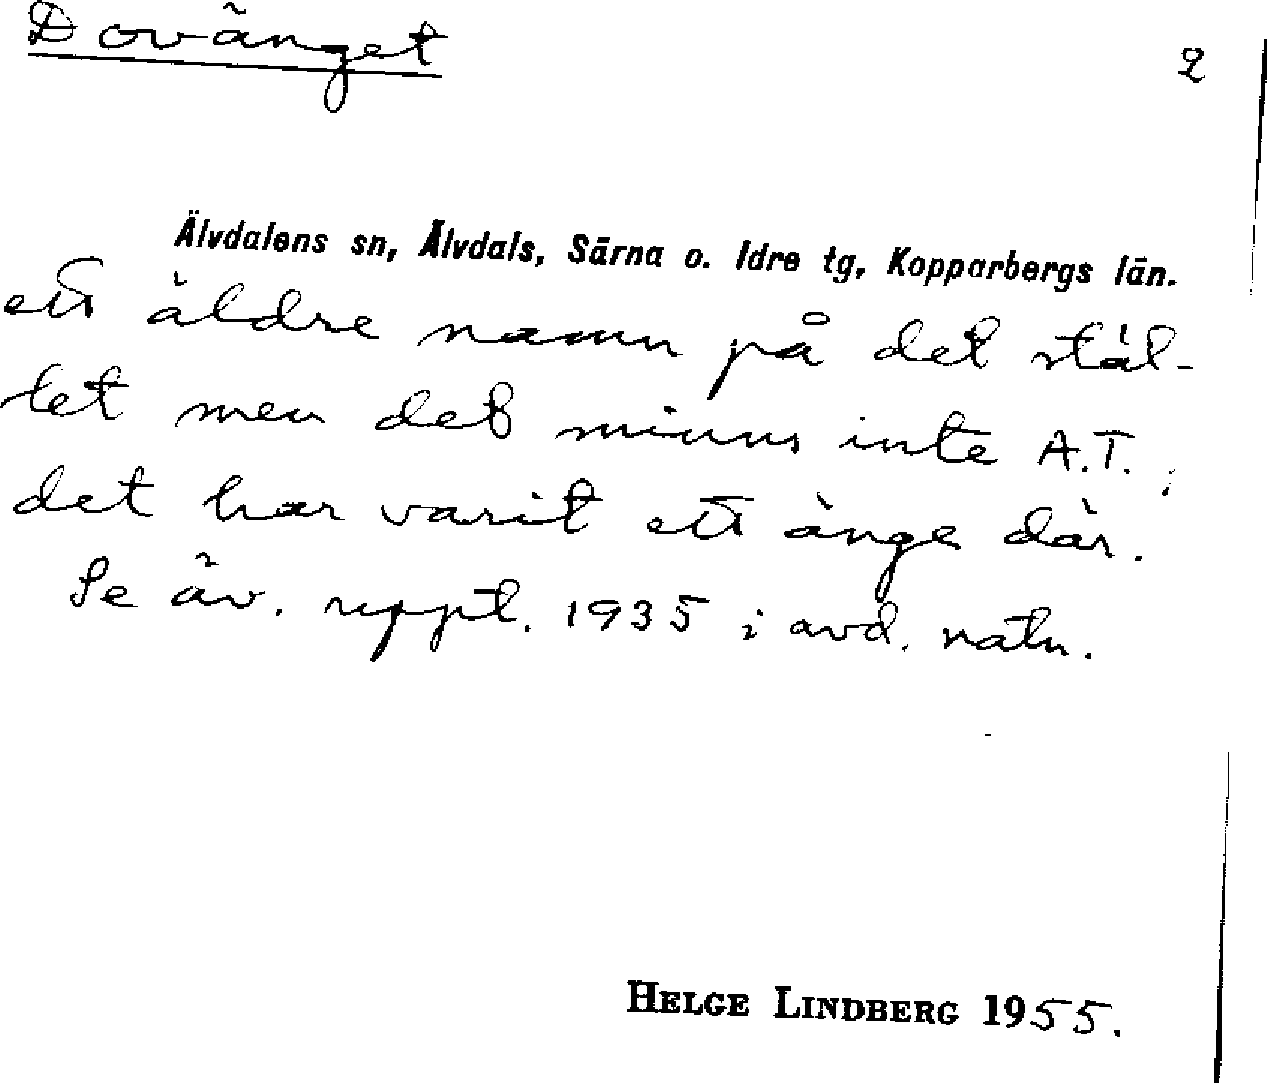 Dovänget
2
Älvdalens sn, Älvdals, Särna o. Idre tg, Kopparbergs län.
ett äldre namn på det stäl-
let men det minns inte A.T.;
det har varit ett änge där.
Se äv. uppt. 1935 i avd. natn.
HELGE LINDBERG 1955.